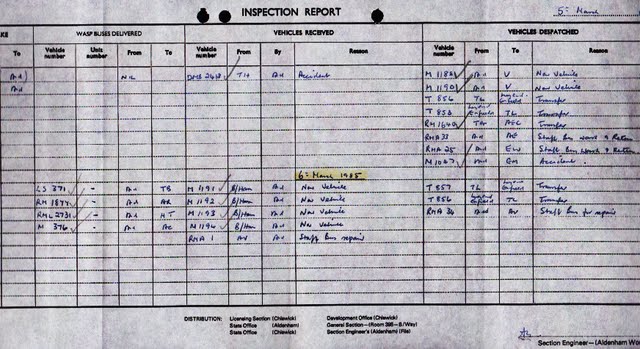 INSPECTION REPORT
5th March
KE WASP BUSES DELIVERED VEHICLES RECEIVED VEHICLES DESPATCHED
To Vehicle number Unit number From To Vehicle number From By Reason Vehicle number From To Reason
Ad NIL DMS 2418 TH Ad Accident M 1188 Ad V New Vehicle
Ad M 1190 Ad V New Vehicle
T 854 TL Transfer
T 853 TL Transfer
RM 1640 TH AEC Transfer
RMA 33 Ad AE Staff Bus work & Return
RMA 25 Ad EW Staff Bus work & Return
M 1047 Ad GM Accident
6th March 1985
LS 371 - Ad TB M 1191 B/Ham Ad New Vehicle T 857 TL Transfer
RM 1877 - Ad AR M 1192 B/Ham Ad New Vehicle T 856 TL Transfer
RML 2731 - Ad HT M 1193 B/Ham Ad New Vehicle RMA Ad AV Staff Bus for repair
M 376 - Ad AC M 1194 B/Ham Ad New Vehicle
RMA 1 AV Ad Staff Bus repair
DISTRIBUTION: Licensing Section (Chiswick) Development Office (Chiswick)
State Office (Aldenham) General Section—(Room 295—B/Way)
State Office (Chiswick) Section Engineer's (Aldenham) (File)
Section Engineer—(Aldenham Wo